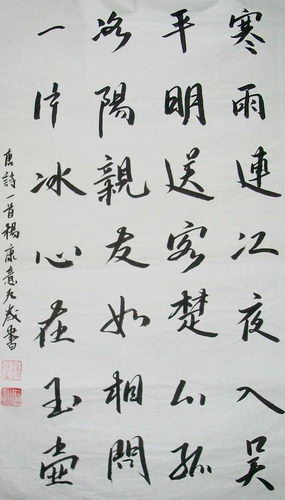 寒雨連江夜入吳
平明送客楚山孤
洛陽親友如相問
一片冰心在玉壺
唐詩一首楊康意左敬書